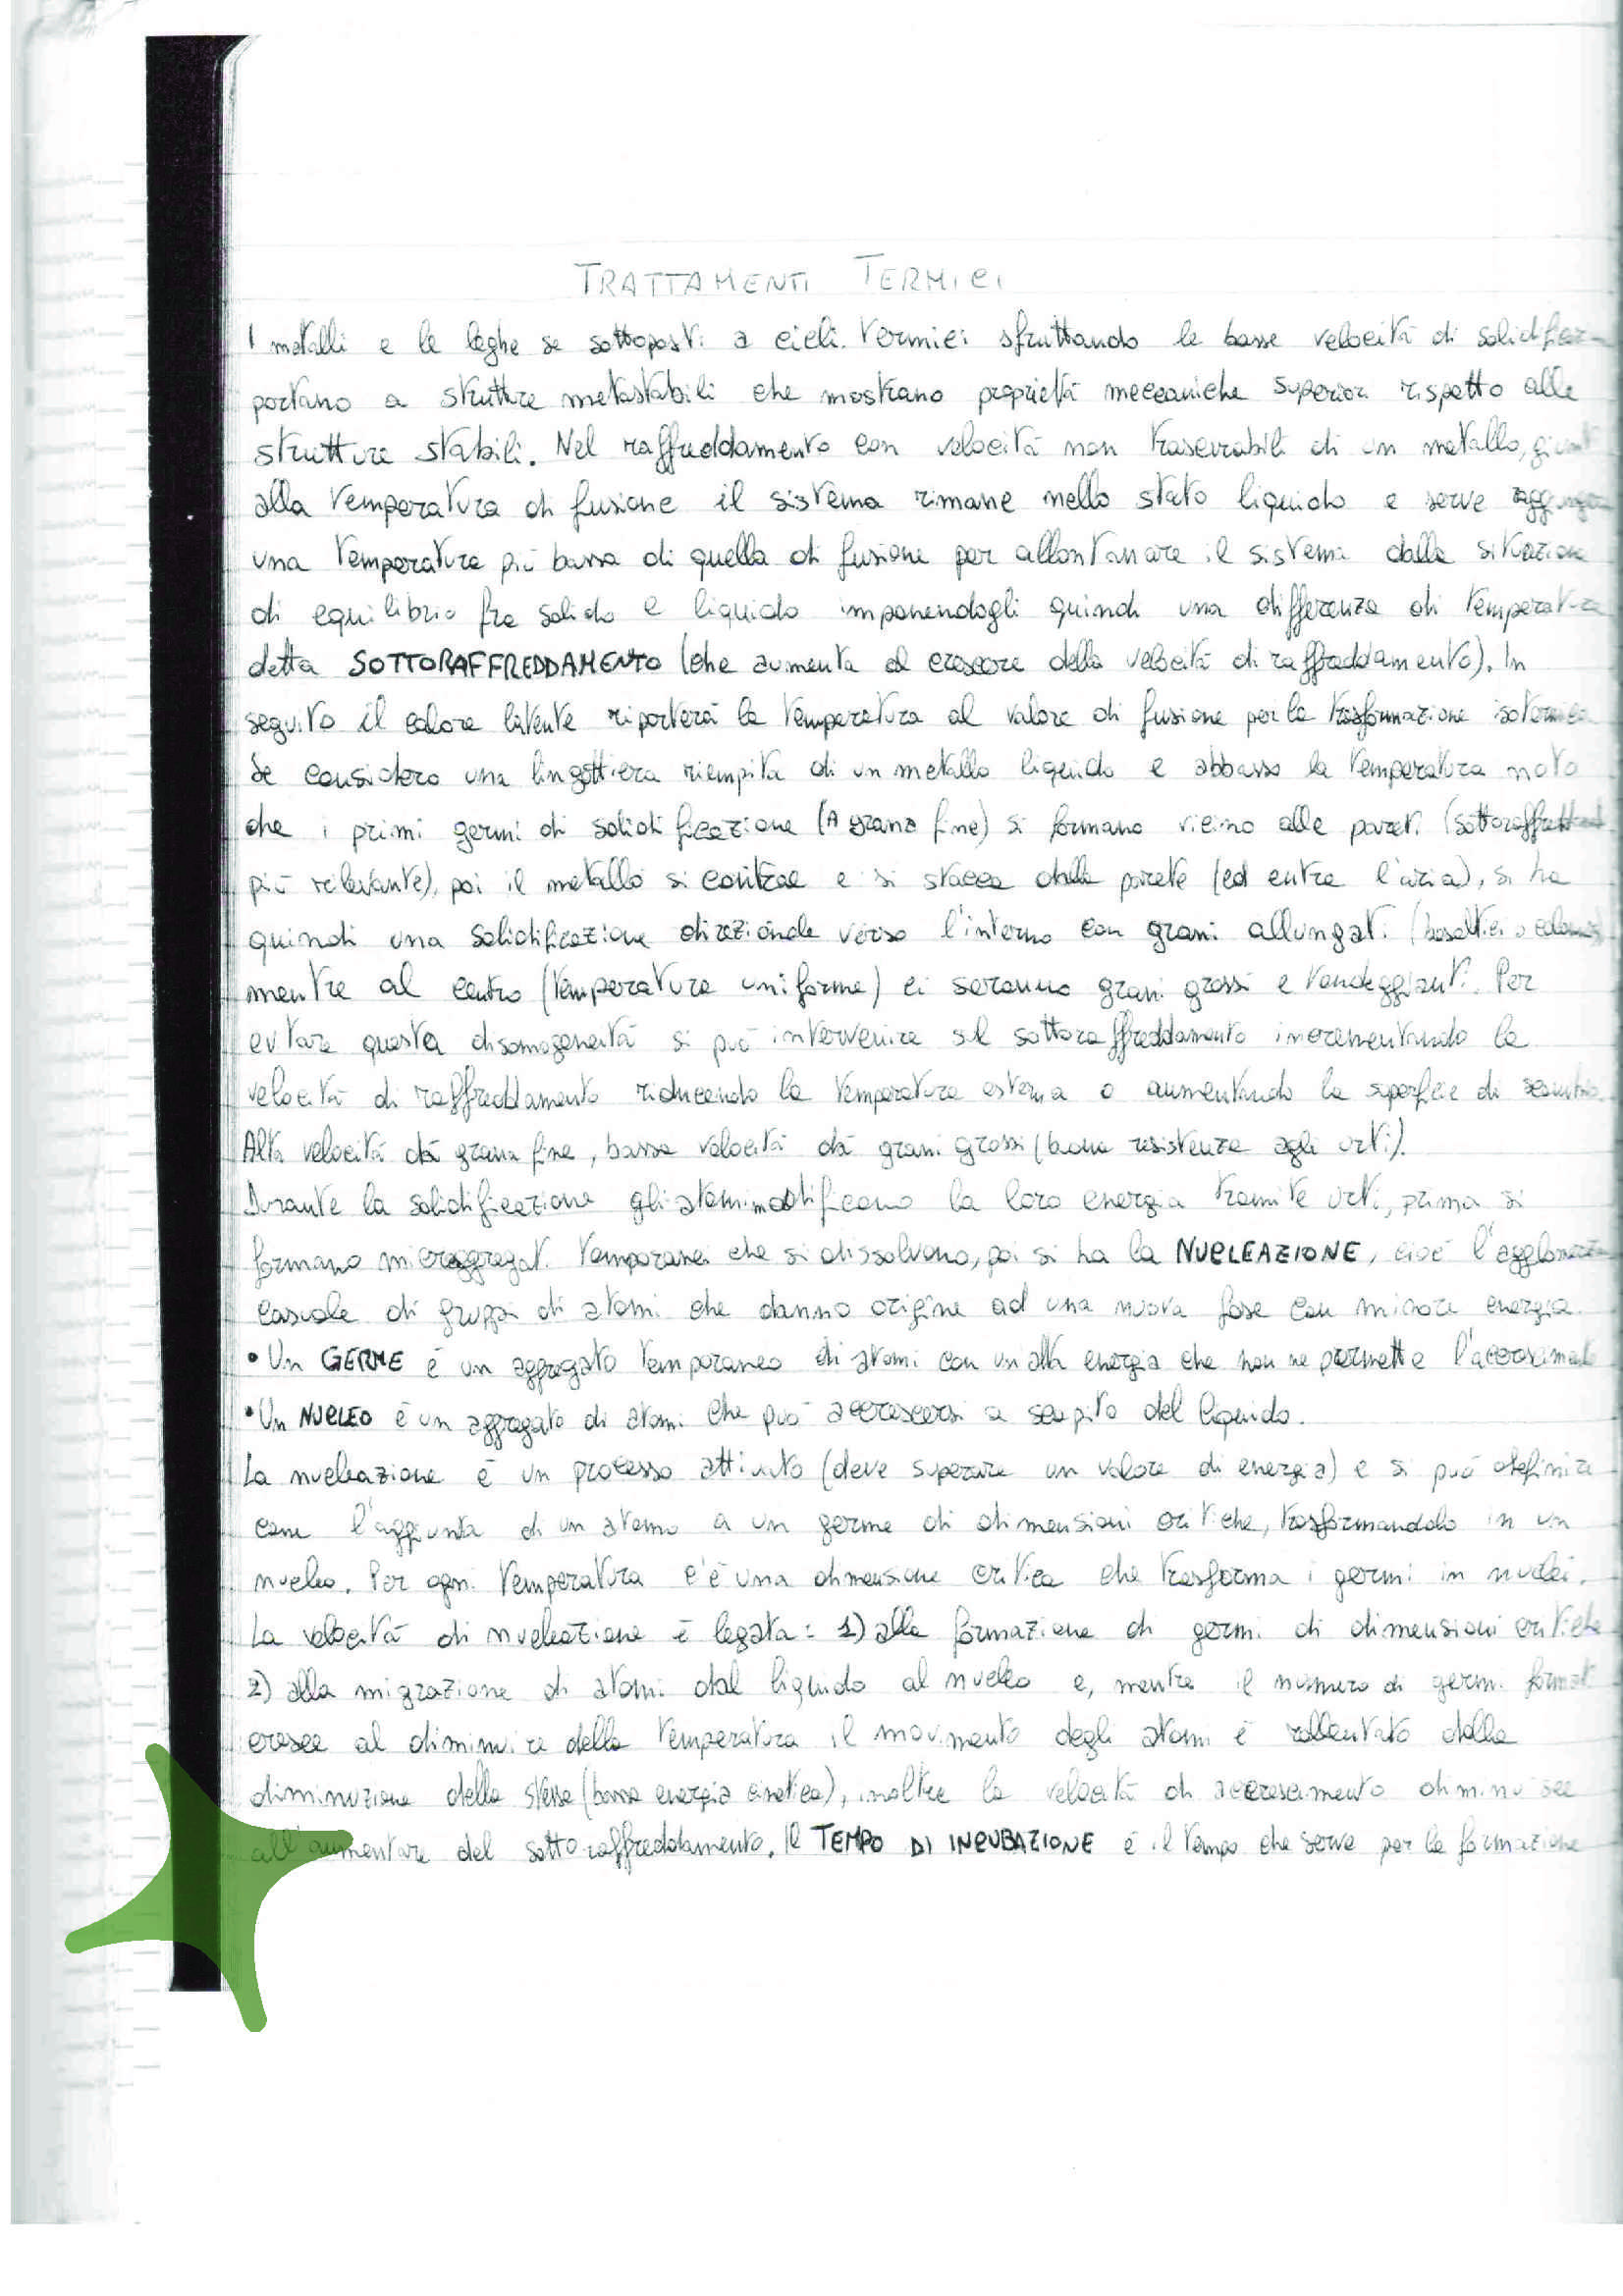 TRATTAMENTI TERMICI
I metalli e le leghe se sottoposti a cicli termici sfruttando le basse velocità di
portano a strutture metastabili che mostrano proprietà meccaniche superiori rispetto alle
strutture stabili. Nel raffreddamento con velocità non trascurabili di un metallo,
alla temperatura di fusione il sistema rimane nello stato liquido e serve
una temperatura più bassa di quella di fusione per allontanare il sistema dalla situazione
di equilibrio fra solido e liquido imponendogli quindi una differenza di temperatura
detta SOTTORAFFREDDAMENTO (che aumenta al crescere della velocità di raffreddamento). In
seguito il calore latente riporterà la temperatura al valore di fusione per la trasformazione
Se considero una lingottiera riempita di un metallo liquido e abbasso la temperatura noto
che i primi germi di solidificazione (A grano fine) si formano vicino alle pareti
più rilevante), poi il metallo si contrae e si stacca dalla parete (ed entra l'aria), si ha
quindi una solidificazione direzionale verso l'interno con grani allungati (basaltici o
mentre al centro (temperatura uniforme) ci saranno grani grossi e tondeggianti. Per
evitare questa disomogeneità si può intervenire sul sottoraffreddamento incrementando la
velocità di raffreddamento riducendo la temperatura esterna o aumentando la superficie di scambio.
Alta velocità dà grana fine, bassa velocità dà grani grossi (buona resistenza agli urti).
Durante la solidificazione gli atomi modificano la loro energia tramite urti, prima si
formano microaggregati temporanei che si dissolvono, poi si ha la NUCLEAZIONE, cioè
casuale di gruppi di atomi che danno origine ad una nuova fase con minore energia.
• Un GERME è un aggregato temporaneo di atomi con un'alta energia che non ne permette
• Un NUCLEO è un aggregato di atomi che può accrescersi a scapito del liquido.
La nucleazione è un processo attivato (deve superare un valore di energia) e si può definire
come l'aggiunta di un atomo a un germe di dimensioni critiche, trasformandolo in un
nucleo. Per ogni temperatura c'è una dimensione critica che trasforma i germi in nuclei.
La velocità di nucleazione è legata: 1) alla formazione di germi di dimensioni critiche
2) alla migrazione di atomi dal liquido al nucleo e, mentre il numero di germi formati
cresce al diminuire della temperatura il movimento degli atomi è rallentato dalla
diminuzione della stessa (bassa energia cinetica), inoltre la velocità di accrescimento diminuisce
all'aumentare del sottoraffreddamento. Il TEMPO DI INCUBAZIONE è il tempo che serve per la formazione